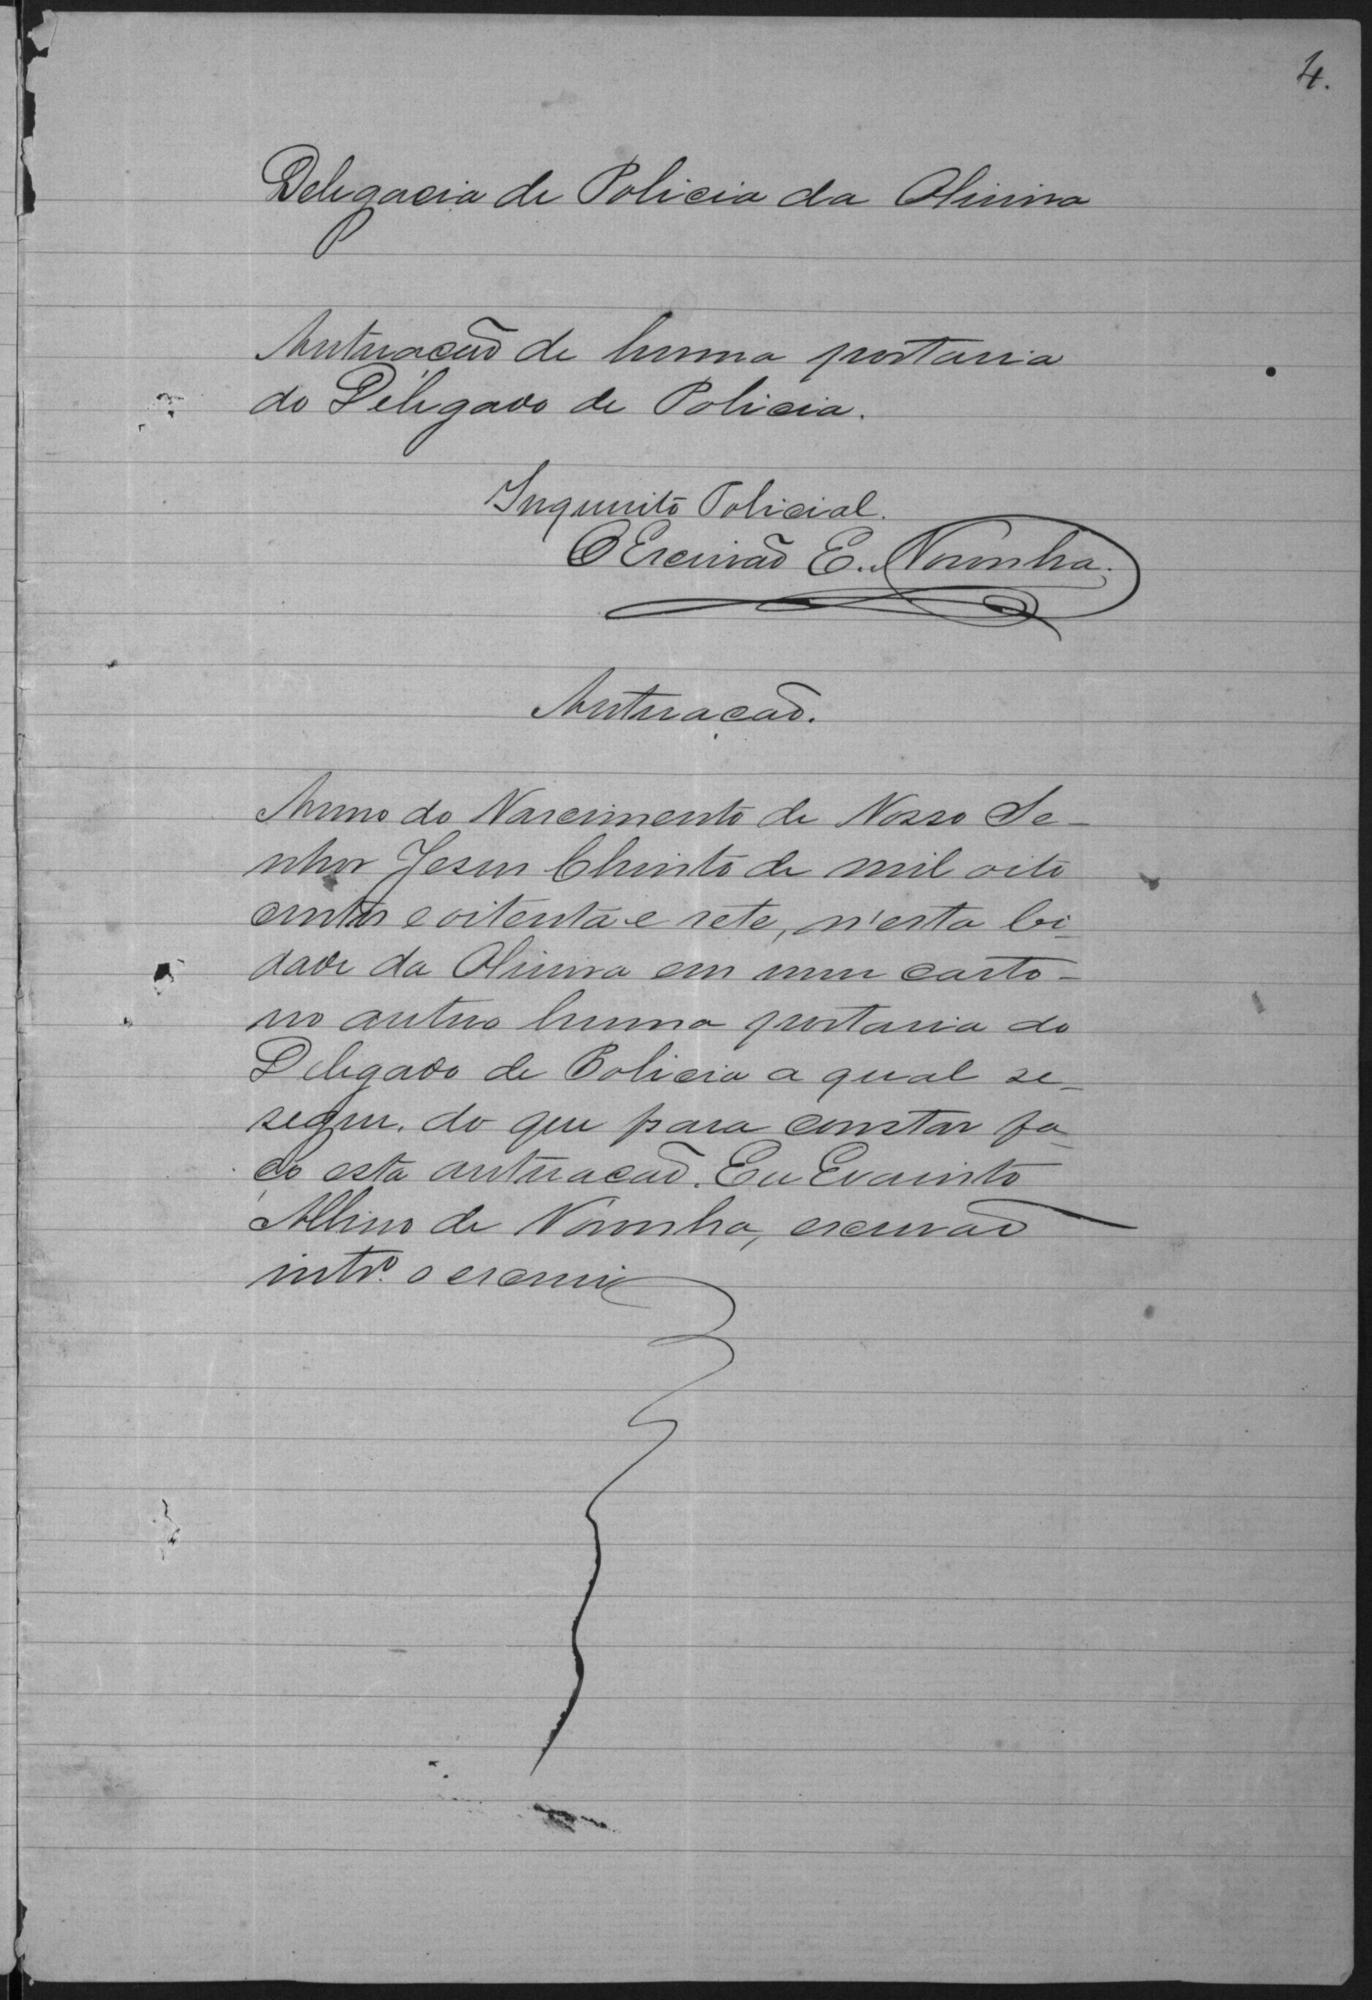 4.
Delegacia de Policia da Oliveira
Autuação de huma portaria
do Delegado de Policia.
Inquerito Policial.
O Escrivão E. Noronha.
Autuação.
Anno do Nascimento de Nosso Se-
nhor Jesus Christo de mil oito
centos e oitenta e sete, n'esta Ci-
dade da Oliveira em meu carto-
rio autuo huma portaria do
Delegado de Policia a qual se-
segue. do que para constar fa-
ço esta autuação. Eu Evaristo
Albino de Noronha, escrivão
intrº. o escrevi